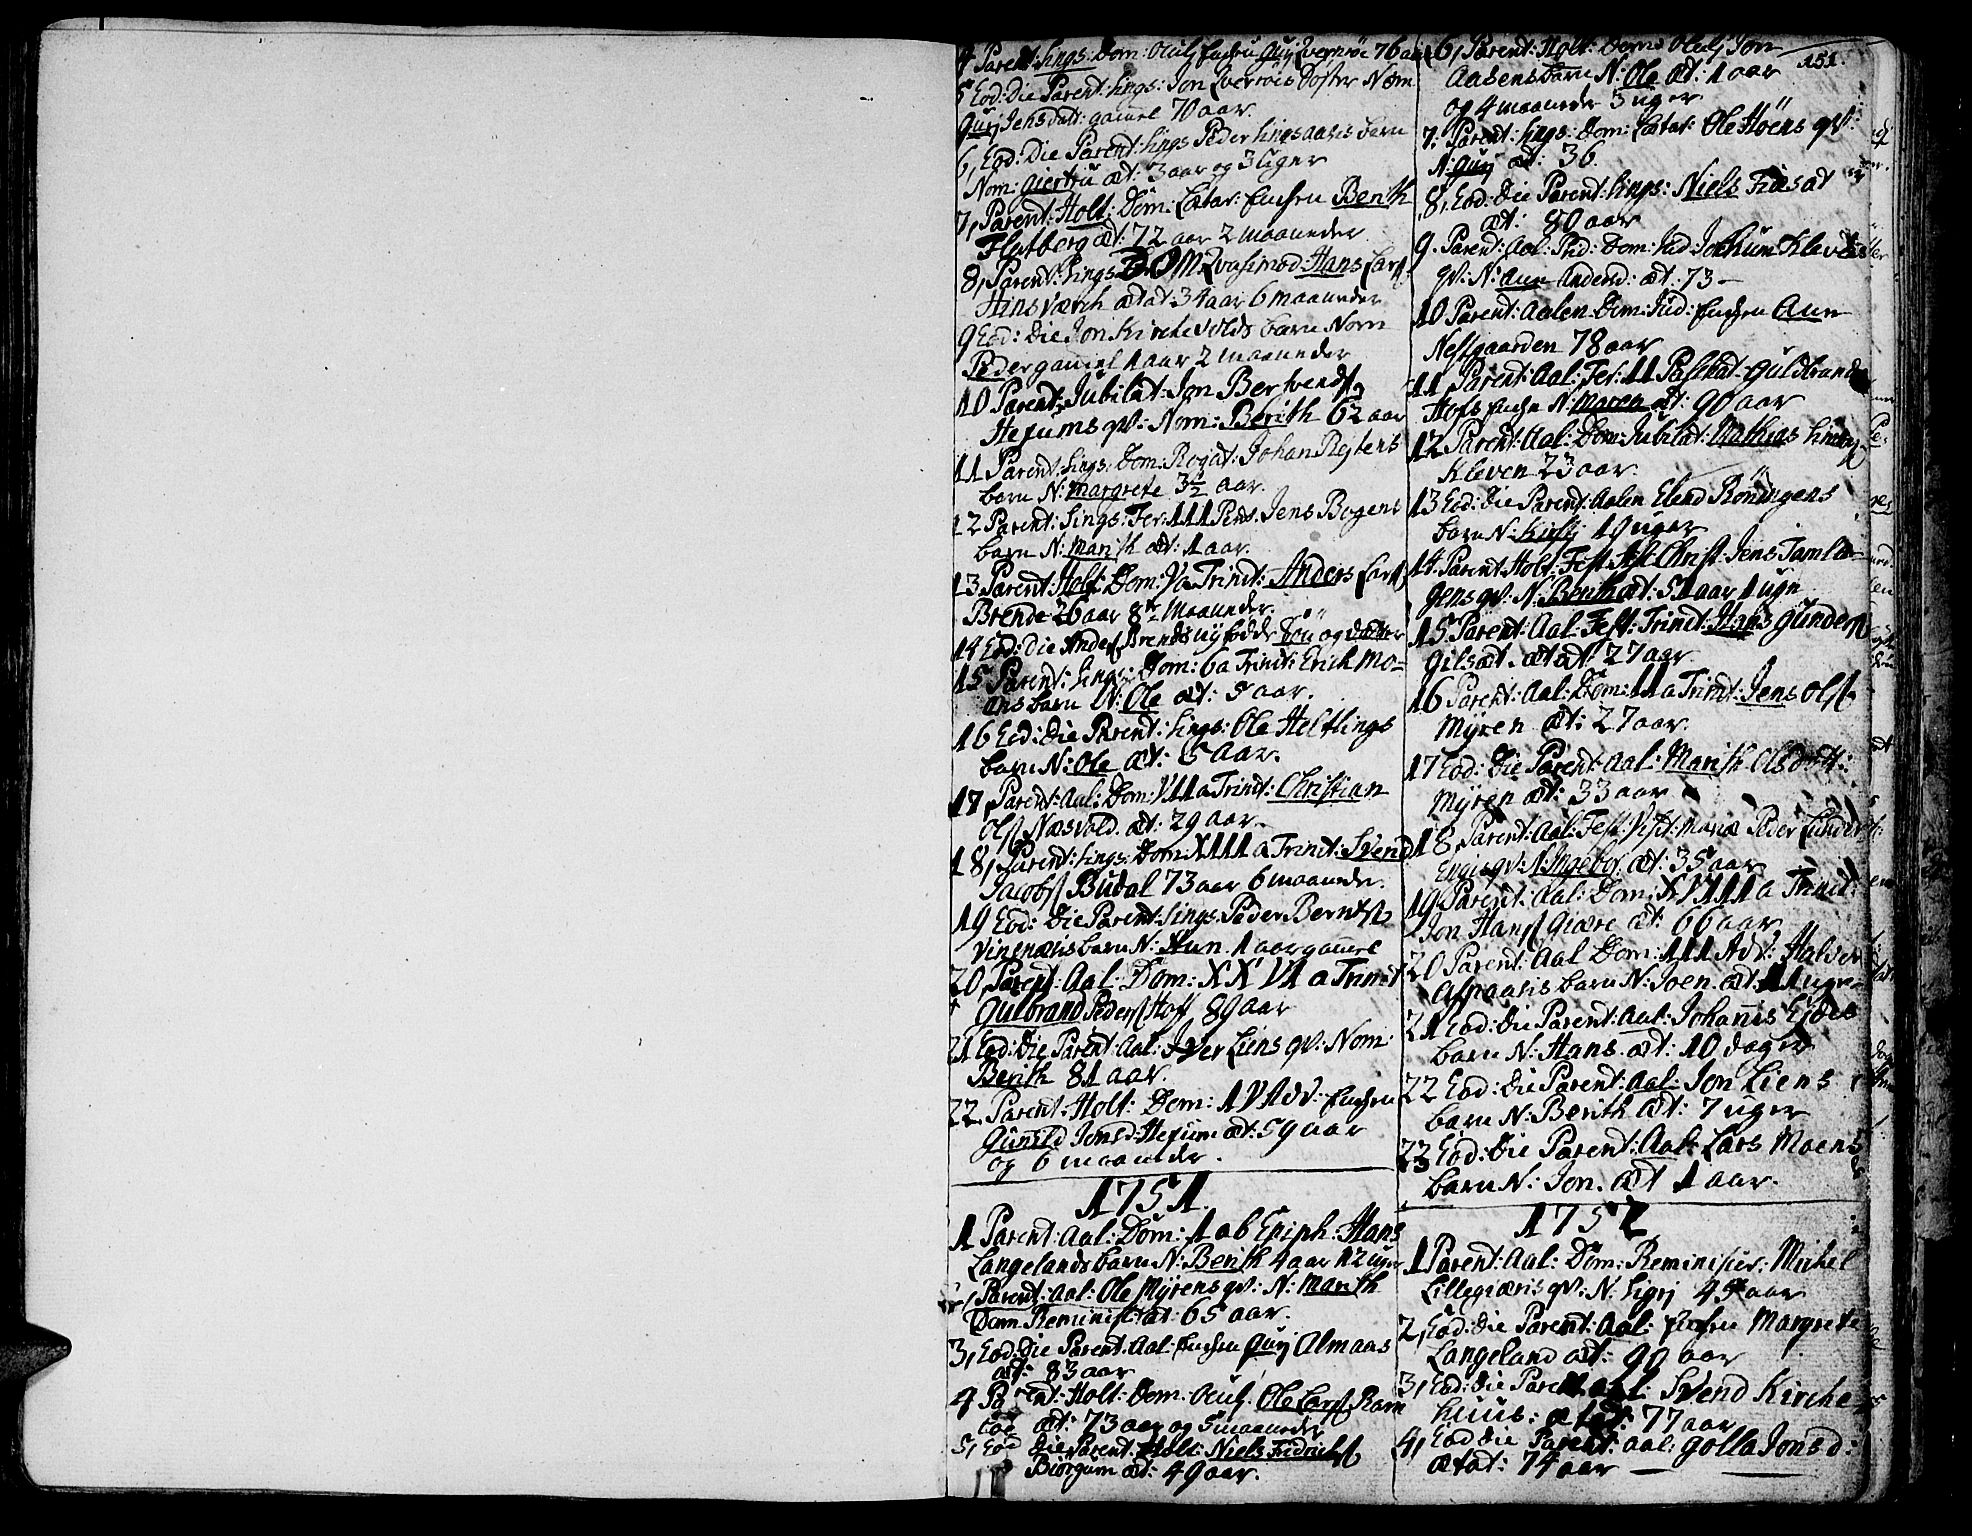 4 Parent: Sings: Dom: Oculj Enchen Gurj Qvernröe 76 aar
5 Eod: Die Parent: Sings: Jon Qvernröes Doster Nom
Gurj Jensdatt: gamel 70 aar.
6, Eod: Die Parent: Sings Peder Singsaasis barn
Nom: Giertru æt: 3 aar og 3 Uger
7, Parent: Holt: Dom: Lætar: Enchen Berith
Flatberg æt: 72 aar 2 maaneder
8, Parent: Sings: DOM: Qvasimod: Hans Lars
Hinsværch ætat: 34 aar 6 maaneder
9 Eod: Die Jon Kirchevolds barn Nom
Peder gamel 1 aar 2 maaneder
10 Parent: Jubilat: Jon Bertvends
Hexums qv: Nom: Berith 62 aar
11 Parent: Sings: Dom: Rogat: Johan Rejters
barn N: Margrete 3½ aar.
12 Parent: Sings: Fer: 111 Pent. Jens Bogens
barn N: Marith æt: 1 aar.
13 Parent: Holt: Dom: Va Trinit: Anders Lars
Brende 26 aar 8½ Maaneder.
14 Eod: Die Anders Brends nyfødde Søn og datter
15 Parent: Sings: Dom: 6a Trinit: Erich Mo-
ens barn N: Ole æt: 5 aar.
16 Eod: Die Parent: Sings: Ole Heltlings
barn N: Ole æt: 5 aar.
17, Parent: Aal: Dom: V11 a Trinit: Christian
Ols Næsvold. æt: 29 aar.
18, Parent: Sings: Dom: X111 a Trinit: Svend
Jacobs Budal 73 aar 6 maaneder.
19 Eod: Die Parent: Sings: Peder Bernts
Vinsnæsis barn N: Aun 1 aar gamel
20, Parent: Aal: Dom: XXV1 a Trinit
Gulbrand Peders Hoff 89 aar
21 Eod: Die Parent: Aal: Iver Liens qv: Nom:
Berith 81 aar.
22. Parent: Holt: Dom: 1V Adv: Enchen
Gunild Jonsd: Hexum æt: 59 aar
og 6 maaneder.
1751.
1 Parent: Aal: Dom: 1 ab Epiph: Hans
Langelands barn N: Berith 4 aar 12 uger
2, Parent: Aal: Ole Myrens qv: N: Marith
Dom Reminis: ætat: 65 aar.
3, Eod: Die Parent: Aal: Enchen Gurj Almaas
æt: 83 aar
4 Parent: Holt: Dom: Oculj: Ole Lars Ram
æt: 73 aar og 5 maaneder
5, Eod Die Parent: Holt: Niels Fridrichs
Biörgum æt: 49 aar.
151.
6, Parent: Holt: Dom: Oculj Jon
Aasens barn N: Ole æt: 1 aar
og 4 maaneder 3 uger
7. Parent: Sings: Dom: Lætat: Ole Höens qv:
N: Gurj æt: 36.
8, Eod: Die Parent: Sings: Niels
æt: 80 aar
9. Parent: Aal: Dom: Jud: Jochum Klevens
qv: N: Aun Andersd: æt: 73 -
10 Parent: Aalen Dom: Jud: Enchen Aun
Nestgaarden 78 aar
11 Parent: Aal: Fer: 11 Paschat: Guldbrand
Hofs Enche N: Maren æt: 90 aar
12 Parent: Aal: Dom: Jubilat: Mathias
Kleven 23 aar.
13 Eod: die Parent: Aalen Elend Röningens
barn N: Kirstj 19 uger
14. Parent: Holt: Fest: Asc: Christ: Jens Tamla-
gens qv: N: Berith æt: 51 aar 1 uge
15 Parent: Aal: Fest: Trinit: Hans Gunders
Gilsæt. ætat: 27 aar
16 Parent: Aal: Dom: 11 a Trinit: Jens Ols
Myren æt: 27 aar.
17 Eod: Die Parent: Aal: Marith Olsdatt:
Myren æt: 33 aar
18, Parent: Aal: Fest: Visit: Mariæ Peder
Engis qv: N: Ingebor æt: 35 aar
19 Parent: Aal: Dom: XV111 a Trinit:
Jon Hans Giære æt: 66 aar
20 Parent: Aal Dom: 111 Adv: Halver
Aspaasis barn N: Joen æt: 11 uger
21 Eod: die Parent: Aal: Johannis Ejdes
barn N: Hans æt: 10 dager
22 Eod: Die Parent: Aal: Jon Liens
barn N: Berith æt: 7 uger
23 Eod: Die Parent: Aal: Lars Moens
barn N: Jon. æt 1 aar.
1752
1 Parent: Aal: Dom: Reminiscer: Michel
Lillegiæris qv: N: Sigrj 45 aar
2, Eod: die Parent: Aal: Enchen Margrete
Langeland æt: 90 aar
3, Eod: die Parent: Aal: Svend Kirche
huus: ætat: 77 aar
4, Eod die Parent: Aal: Golla Jonsd:
ætat: 74 aar